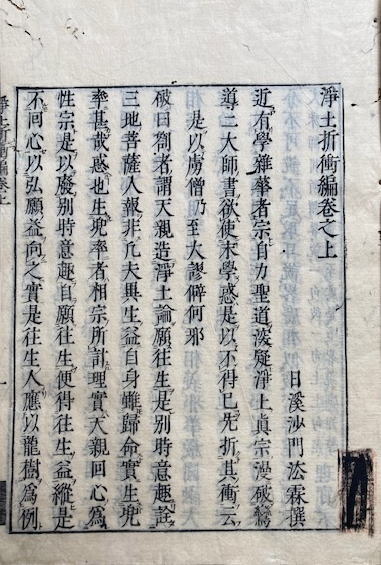 淨土折衝編卷之上
日溪沙門法霖撰
近有學雜華者宗自力聖道淺疑淨土眞宗漫破鸞
導二大師書欲使末學惑是以不得已先折其衝云
是以虜僧乃至大謬僻何邪
破曰劄者謂天親造淨土論願往生是別時意趣詮
三地菩薩入報非凡夫與生益自身雖歸命實生兜
率甚哉惑也生兜率者相宗所計理實天親回心爲
性宗是以廢別時意趣自願往生便得往生益縱是
不回心以弘願益向之實是往生人應以龍樹爲例
淨土折衝編卷上